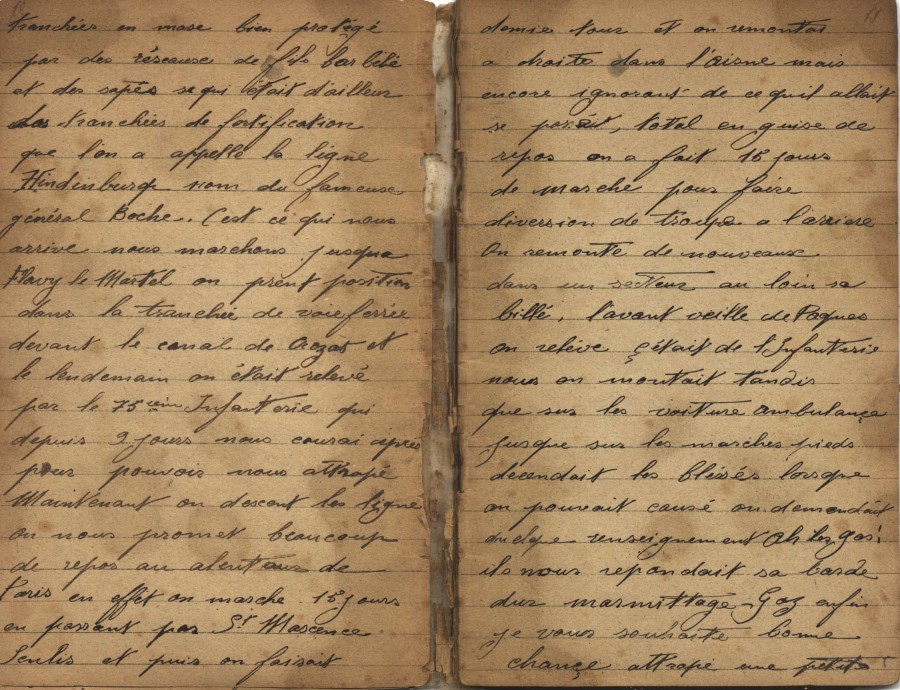 10
tranchées en mase bien protégé
par des réseause de fils barbélé
et des sapes se qui était d'ailleur
des tranchées de fortification
que l'on a appellé la ligne
Hindinburge nom du fameuse
général Boche. C'est ce qui nous
arrive nous marchons jusqua
Flavy le Martel on prent position
dans la tranchée de voie ferrée
devant le canal de Crozas et
le lendemain on était relevé
par le 75 ieim Infanterie qui
depuis 2 jours nous courai après
pour pouvois nous attrapé
Maintenant on descent les ligne
on nous promet beaucoup
de repos au alentour de
Paris en effet on marche 15 jours
en passant par St Maxence
Senlis et puis on faisait
11
demie tour et on remontai
a droite dans l'aisne mais
encore ignorant de ce quil allait
se passait, total en guise de
repos on a fait 15 jours
de marche pour faire
diversion de troupe a l'arriere
On remonte de nouveaux
dans un secteur au loin sa
billé, l'avant veille de Paques
on relève çétait de l'Infanterie
nous on montait tandis
que sur les voiture ambulançe
jusque sur les marches pieds
decendait les bléssés lorsque
on pouvait causé on demandait
quelque renseignement Ah les gas!
ils nous repondait sa barde
dur marmittage, Gaz enfin
je vous souhaite bonne
chançe attrapé une petite